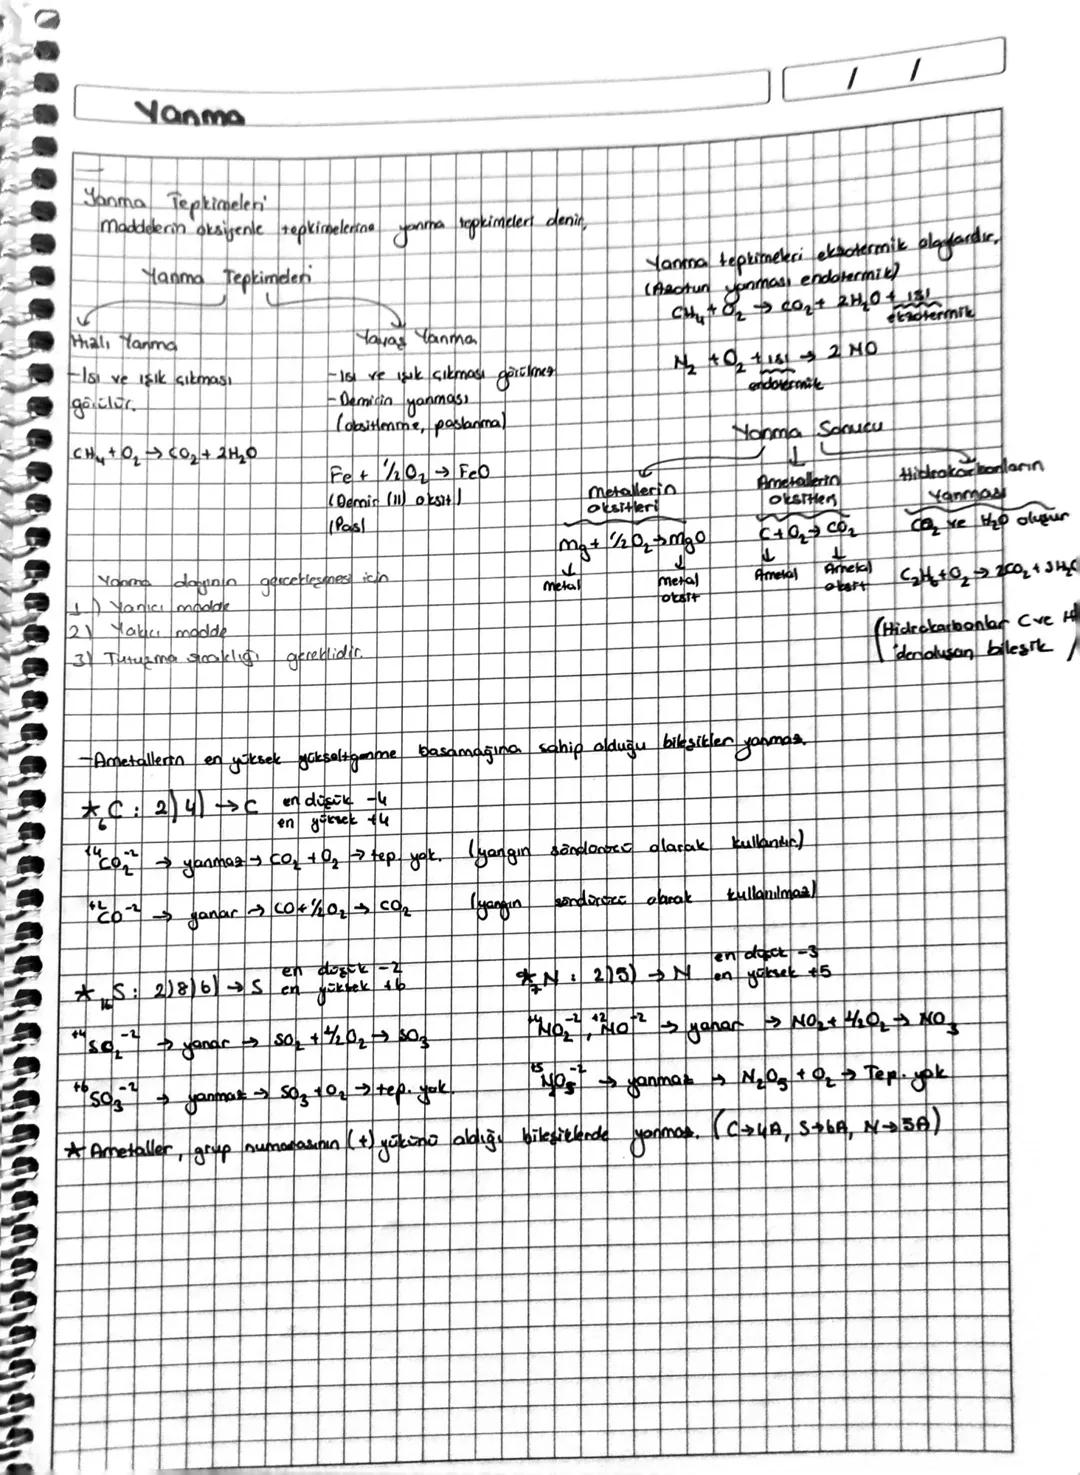 Yanma
/ /
Yanma Tepkimeleri
Maddelerin oksijenle tepkimelerine yanma tepkimeleri denir.
Yanma Tepkimeleri
Hızlı Yanma
-Isı ve ışık çıkması
görülür.
CH₄ + O₂ → CO₂ + 2H₂O
Yavaş Yanma
-Isı ve ışık çıkması görülmez
-Demirin yanması
(oksitlenme, paslanma)
Fe + 1/2 O₂ → FeO
(Demir (II) oksit)
(Pas)
Yanma tepkimeleri ekzotermik olaylardır.
(Azotun yanması endotermik)
CH₄ + O₂ → CO₂ + 2H₂O + ısı
ekzotermik
N₂ + O₂ + ısı → 2 NO
endotermik
Yanma Sonucu
Metallerin
oksitleri
Mg + 1/2 O₂ → MgO
↓ ↓
metal metal
oksit
Ametallerin
oksitleri
C + O₂ → CO₂
↓ ↓
Ametal Ametal
oksit
Hidrokarbonların
Yanması
CO₂ ve H₂O oluşur
C₂H₆ + O₂ → 2CO₂ + 3H₂O
(Hidrokarbonlar C ve H
'den oluşan bileşik)
Yanma olayının gerçekleşmesi için
1) Yanıcı madde
2) Yakıcı madde
3) Tutuşma sıcaklığı gereklidir.
-Ametallerin en yüksek yükseltgenme basamağına sahip olduğu bileşikler yanmaz.
* ₆C : 2)4) → C en düşük -4
en yüksek +4
⁺⁴CO₂⁻² → yanmaz → CO₂ + O₂ → tep. yok. (yangın söndürücü olarak kullanılır)
⁺²CO⁻² → yanar → CO + 1/2 O₂ → CO₂ (yangın söndürücü olarak kullanılmaz)
* ₁₆S : 2)8)6) → S en düşük -2
en yüksek +6
⁺⁴SO₂⁻² → yanar → SO₂ + 1/2 O₂ → SO₃
⁺⁶SO₃⁻² → yanmaz → SO₃ + O₂ → tep. yok.
* ₇N : 2)5) → N en düşük -3
en yüksek +5
⁺⁴NO₂⁻², ⁺²NO⁻² → yanar → NO₂ + 1/2 O₂ → NO₃
⁺⁵NO₅⁻² → yanmaz → N₂O₅ + O₂ → Tep. yok
* Ametaller, grup numarasının (+) yükünü aldığı bileşiklerde yanmaz. (C→4A, S→6A, N→5A)